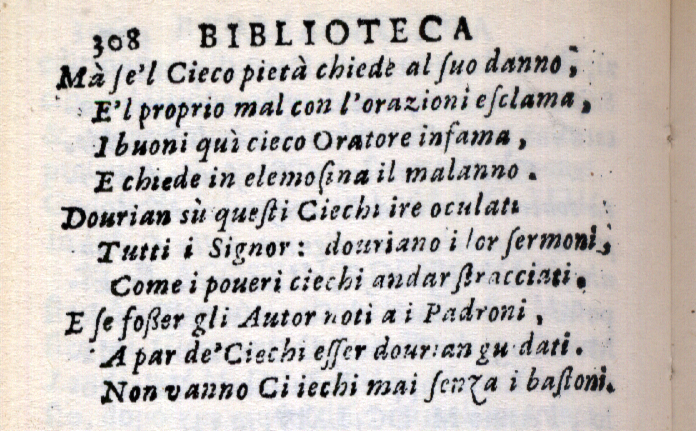 308 BIBLIOTECA
Mà ſe'l Cieco pietà chiede al ſuo danno;
E'l proprio mal con l'orazioni eſclama,
I buoni quì cieco Oratore infama,
E chiede in elemoſina il malanno.
Dourian sù queſti Ciechi ire oculati
Tutti i Signor: douriano i lor ſermoni;
Come i poueri ciechi andar ſtracciati.
E ſe foßer gli Autor noti a i Padroni,
A par de'Ciechi eſſer dourian gu dati.
Non vanno Ci iechi mai ſenza i baſtoni.